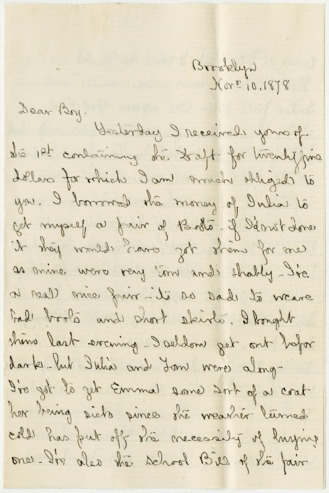 Brooklyn
Novr 10, 1878
Dear Boy.
Yesterday I received yours of
the 1st containing the Draft for twenty five
dollars for which I am much obliged to
you. I borrowed the money of Julia to
get myself a pair of Boots - if I'd not done
it they would have got them for me
as mine were very torn and shabby - I've
a real nice pair - its so sad to weare
bad boots and short skirts. I bought
thins last evening - I seldom get out befor
dark - but Julia and Tom were along -
I've got to get Emma some sort of a coat
her being sick since the weather turned
cold has put off the necessity of buying
one. I've also the school Bill of the fair